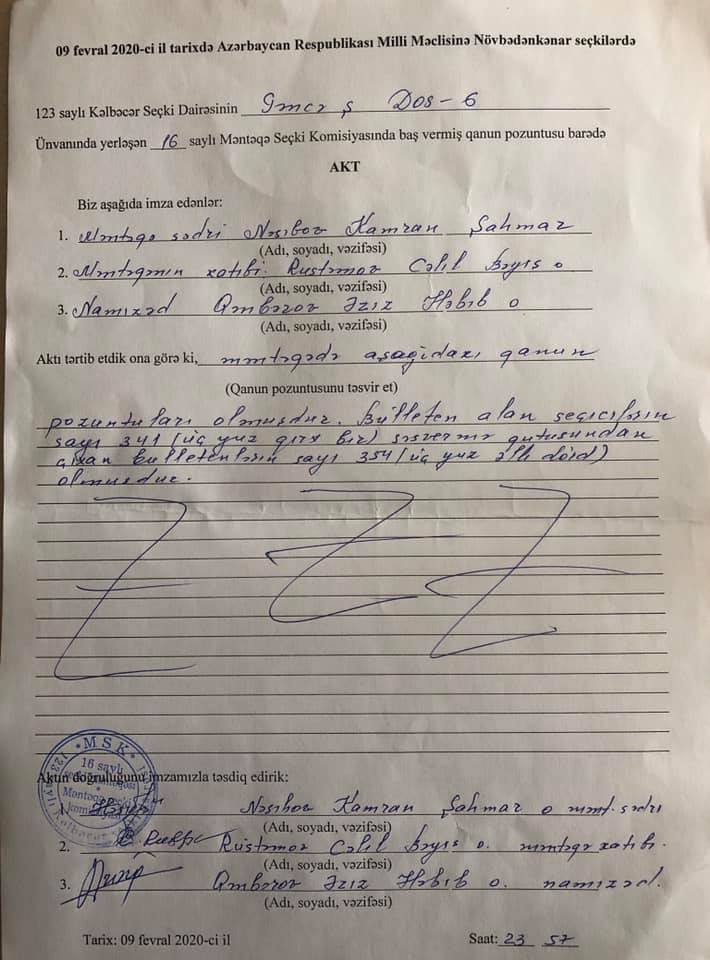 09 fevral 2020-ci il tarixdə Azərbaycan Respublikası Milli Məclisinə Növbədənkənar seçkilərdə
123 saylı Kəlbəcər Seçki Dairəsinin Gəncə ş Dos-6
Ünvanında yerləşən 16 saylı Məntəqə Seçki Komisiyasında baş vermiş qanun pozuntusu barədə
AKT
Biz aşağıda imza edənlər:
1. Məntəqə sədri Nəsibov Kamran Şahmar
(Adı, soyadı, vəzifəsi)
2. Məntəqənin katibi. Rüstəmov Cəlil Bəyis o
(Adı, soyadı, vəzifəsi)
3. Namizəd Qəmbərov Əziz Həbib o
(Adı, soyadı, vəzifəsi)
Aktı tərtib etdik ona görə ki, məntəqədə aşağıdakı qanun
(Qanun pozuntusunu təsvir et)
pozuntuları olmuşdur. Bülleten alan seçicilərin
sayı 341 (üç yüz qırx bir) səsvermə qutusundan
çıxan bulletenlərin sayı 354 (üç yüz əlli dörd)
olmuşdur.
MSK
16 saylı
Məntəqə Seçki
Aktın doğruluğunu imzamızla təsdiq edirik:
1. Nəsibov Kamran Şahmar o mənt. sədri
(Adı, soyadı, vəzifəsi)
2. Rüstəmov Cəlil Bəyis o. məntəqə katibi.
(Adı, soyadı, vəzifəsi)
3. Qəmbərov Əziz Həbib o. namizəd.
(Adı, soyadı, vəzifəsi)
Tarix: 09 fevral 2020-ci il Saat: 23 57